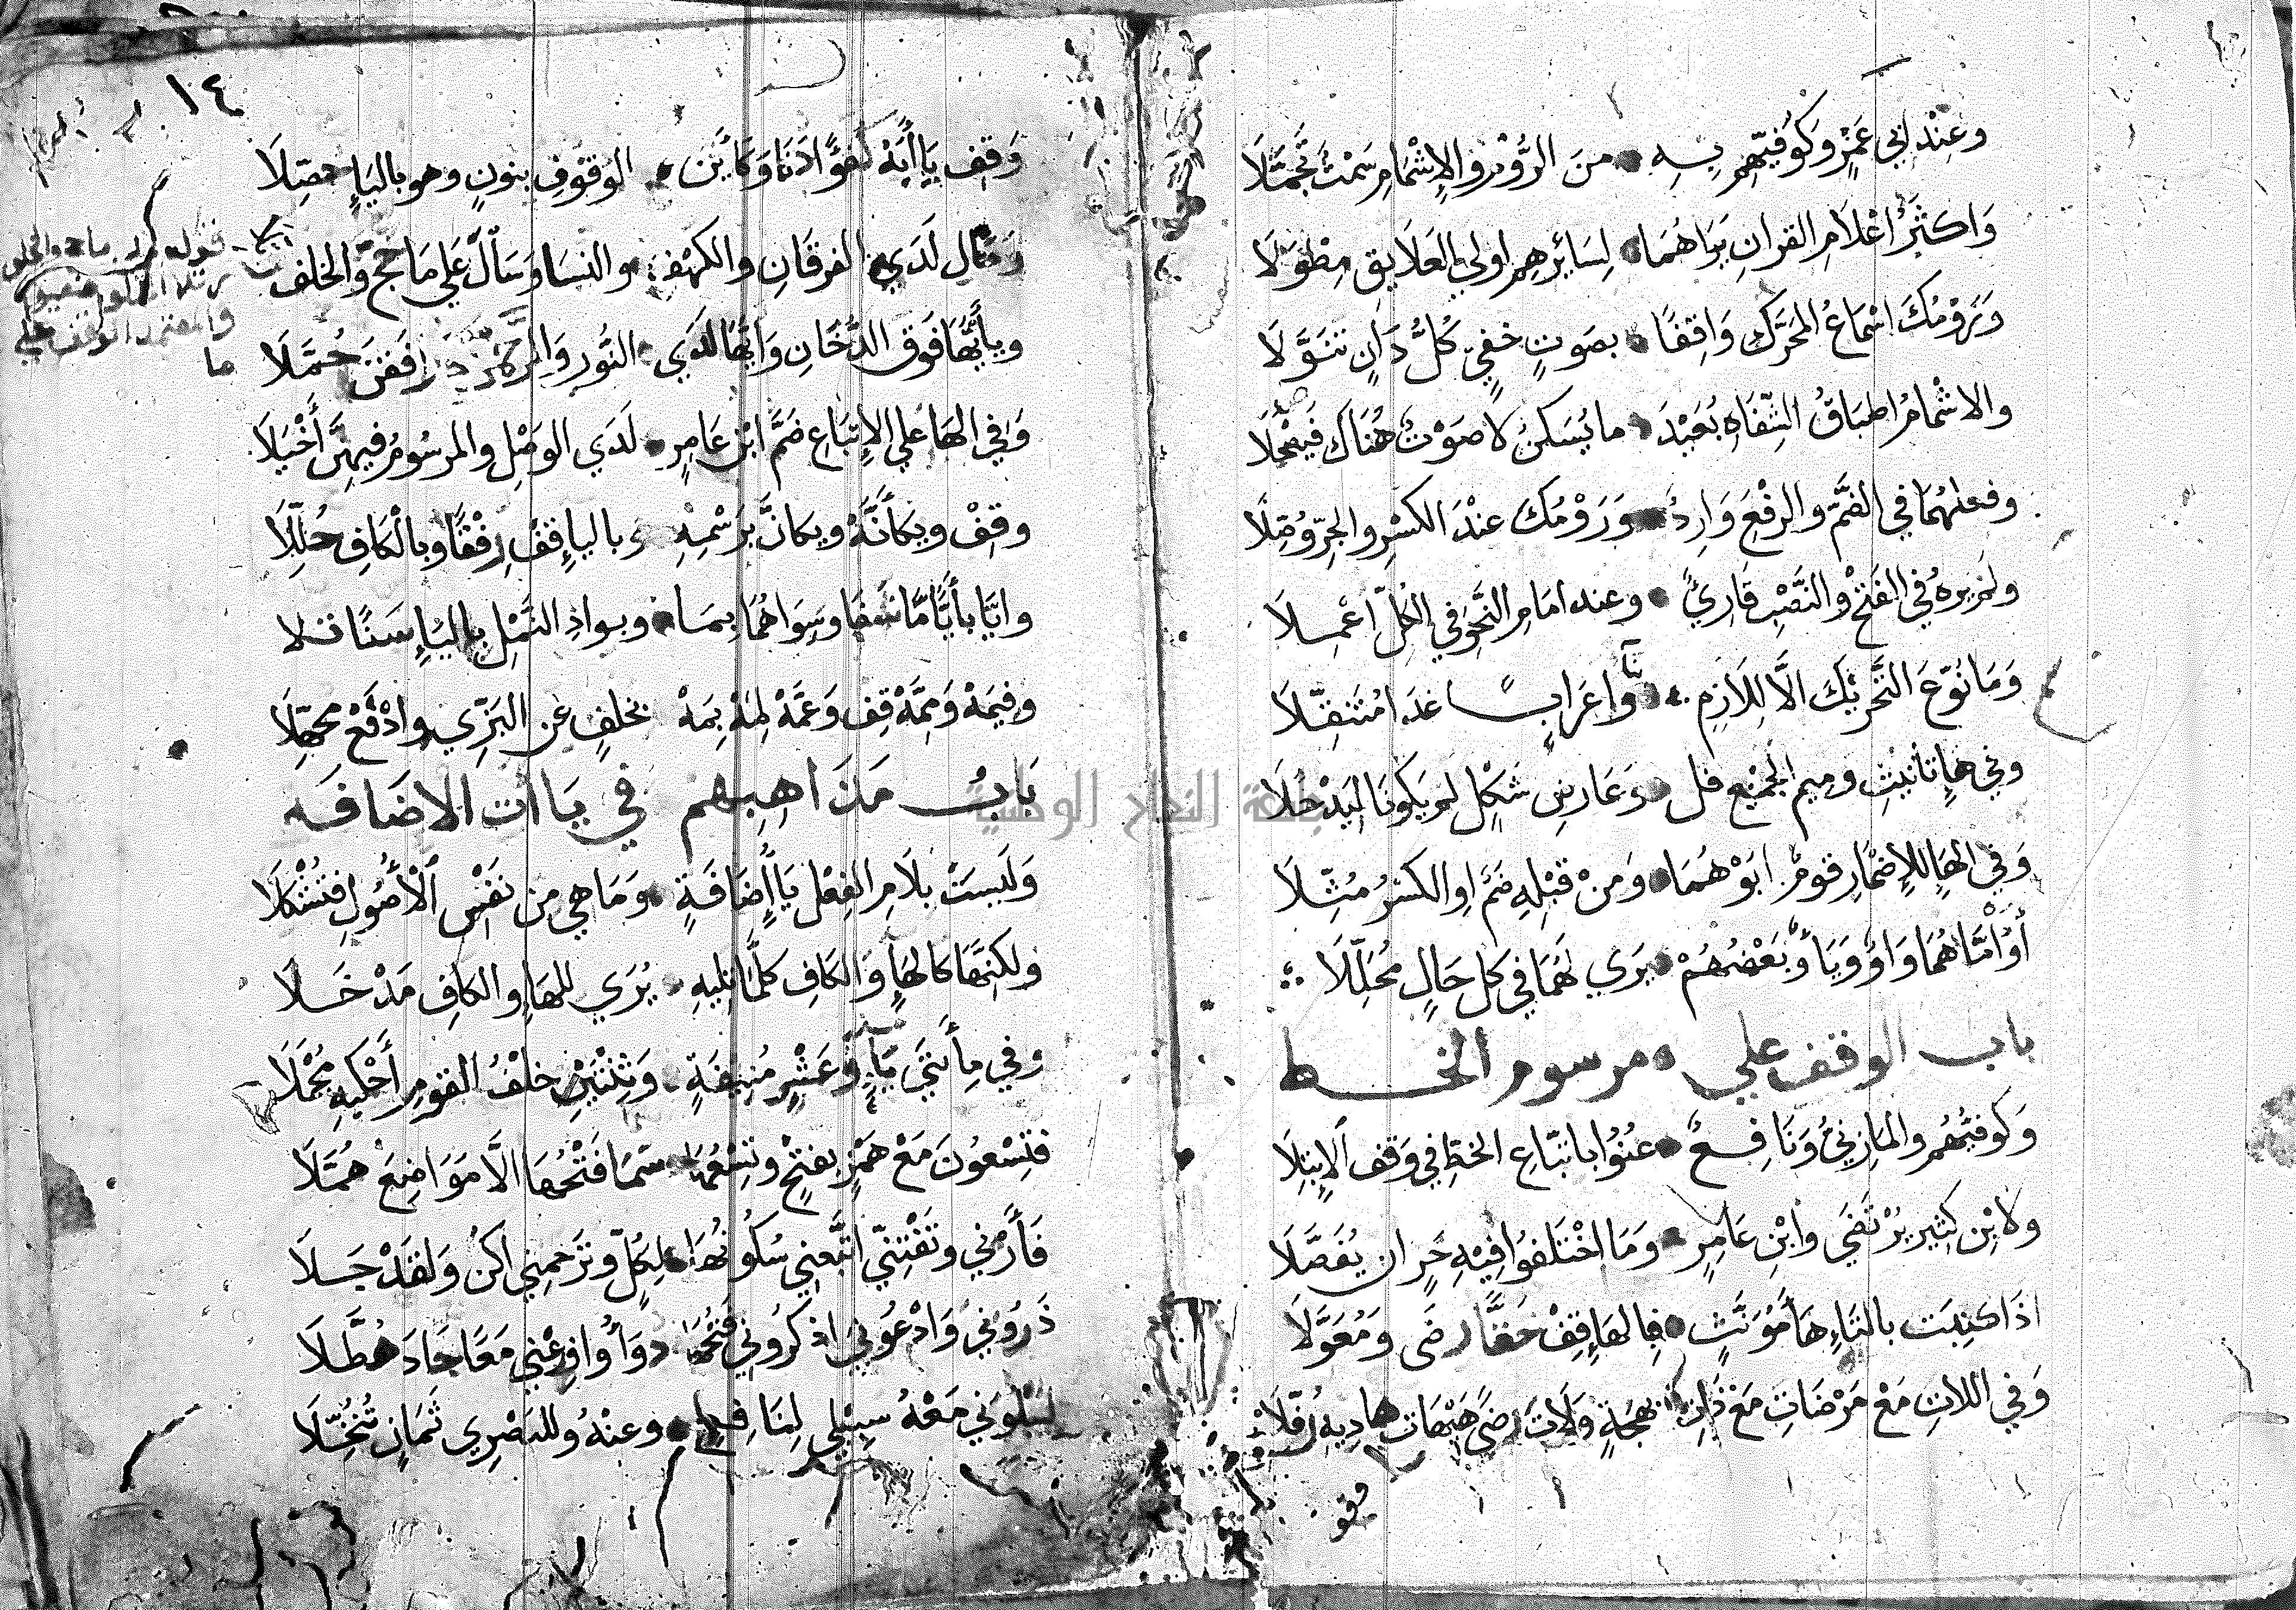 وعِنْدَ أبي عَمْرٍو وَكُوفِيّهِمْ بِهِ مِنَ الرَّوْمِ والاِشْمَامِ سَمْتٌ تَجَمَّلَا
وَاكثَرُ اعْلَامِ القرانِ يَرَاهُمَا لِسَائِرِهِم اولي العَلَايِقِ مِطْوَلَا
وَرَوْمُكَ اسْمَاعُ المُحَرَّكِ وَاقِفًا بصَوتٍ خفِيّ كُلَّ دَانٍ تنَوَّلَا
والاشْمامُ اطبَاقُ الشّفَاهِ بُعَيْدَ ما يُسَكنُ لا صَوْتٌ هُنَاكَ فَيَصْحَلَا
وفعلهُمَا في الضَّمِّ والرفْعِ وَارِدٌ وَرَوْمُكَ عنْدَ الكسْرِ والجرِّ وُصِّلَا
ولم يرهُ في الفَتْحِ والنَّصْبِ قَارِئٌ وعند امَامِ النَّحوِ في الكُلِّ اعْمِلَا
وَمَا نُوّعَ التَّحْرِيْكَ الَّا لِلَازِمٍ بنَآءً وَاعْرَابًا غدَا مُتَنقِّلَا
وفي هَاءِ تانيثٍ وميم الجَمْيْع قل وَعَارضِ شَكْلٍ لم يَكُونَا لِيَدْخُلَا
وَفي الهَاءِ للإِضْمَارِ قومٌ ابَوْهُمَا وَمنْ قبْلِهِ ضَمٌّ اوِ الكسْرُ مُثِّلَا
أَوُ امَّا هُمَا وَاوٌ وَيَاءٌ وَبَعْضُهُمْ يَرَي لَهُمَا في كلِّ حَالٍ مُحَلِّلَا
باب الوقف علي مرسوم الخط
وَكوفيُّهُم والمَازِنيُّ وَنَافِعٌ عُنُوْا باتبّاعِ الخطِ في وَقفِ الاِبْتِلَا
ولابْنِ كثِيرٍ يُرْتَضَي وَابْنِ عَامِرٍ وَمَا اخْتَلَفُوا فِيْهِ حَرٍ ان يُفَصَّلَا
اذَا كتِبَت بالتَاءِ هَاءُ مُؤَنَّثٍ فبِالهَاءِ قِفْ حَقًّا رضَى وَمُعَوَّلَا
وَفي اللاتِ مَعْ مَرْضَاتِ مَعْ ذَاتِ بَهجَةٍ وَلَاتَ رِضًى هَيْهَاتَ هَادِيهِ رُفّلَا
وقفْ
١٤
وَقِف يَا أَبَهْ كُفؤًا دَنَا وَكَأَيِّنِ الوَقوفُ بنونٍ وهو باليَاءِ حصِّلَا
وَمَالِ لَدَي الفرقَانِ والكهْفِ والنسَا وَسَألَ عَلي مَا حَجَّ وَالخلفُ
ويأَيُّهَا فَوقَ الدُّخَانِ وَايُّهَا لَدَي النُّورِ وَالرَّحْمٰنِ رَافَقْنَ حُمَّلَا
وَفي الهَا علي الاِتبَاعِ ضَمَّ ابْنُ عَامِرٍ لَدَي الوَصْلِ والمرسُومُ فيهِنَّ أَخْيَلَا
وقِفْ ويكَأَنَّهْ ويكانَّ برَسْمِهِ وباليَاءِ قفْ رِفْقًا وبالْكَافِ حُلِّلَا
وايَّا بأَيًّامَّا شَفَا وَسِوَاهُمَا بمَا وبوادِ النَّمْلِ باليَاءِ سَنًا تلا
وفيْمَهْ وَمِمَّهْ قِف وَعَمَّهْ لِمَهْ بِمَهْ بخلفٍ عنِ البَزِّي وادْفَعْ مجهِّلَا
بَابُ مَذَاهِبِهم في يَاأت الاضَافَه
وَلَيسَتْ بلَامِ الفِعْلِ يَاأُ إِضَافَةٍ وَمَا هِي مِن نفْسِ الأُصُولِ فتُشْكِلَا
ولكنَّهَا كالهَاءِ وَالكَافِ كلَّمَا تلِيهِ يُرَي للهَاءِ والكافِ مَدْخَلَا
وفي مِأَتَيْ يَآءٍ وَعَشْرٍ مُنِيْفَةٍ وَثِنْتَيْنِ خلْفُ القومِ أَحْكيهِ مُجْمَلَا
فتِسْعُونَ مَعْ هَمْزٍ بفتْحٍ وتِسْعُهَا سَمَا فَتْحُهَا الَّا مَوَاضِعَ هُمَّلَا
فَأَرْني وَتَفْتِنّي اتَّبِعْني سُكُونُهَا لِكُلٍّ وتَرْحمِني اكُن وَلقَدْ جَلَا
ذَرُونيْ وَادْعُوني اذكرُوني فَتْحُهَا دَوَأٌ وَاوزِعْني مَعًا جَادَ هُطَّلَا
لِيَبْلُوَني مَعْهُ سَبِيْلي لِنَافِعٍ وعنْهُ وللبَصْري ثَمَانٍ تُنُخِّلَا